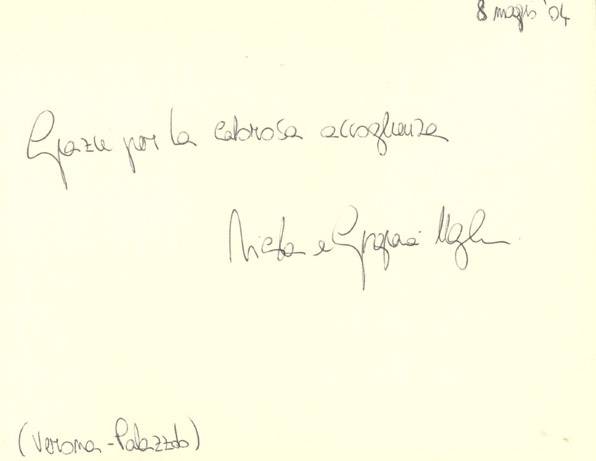 8 maggio '04
Grazie per la calorosa accoglienza
e
(Verona - Palazzolo)